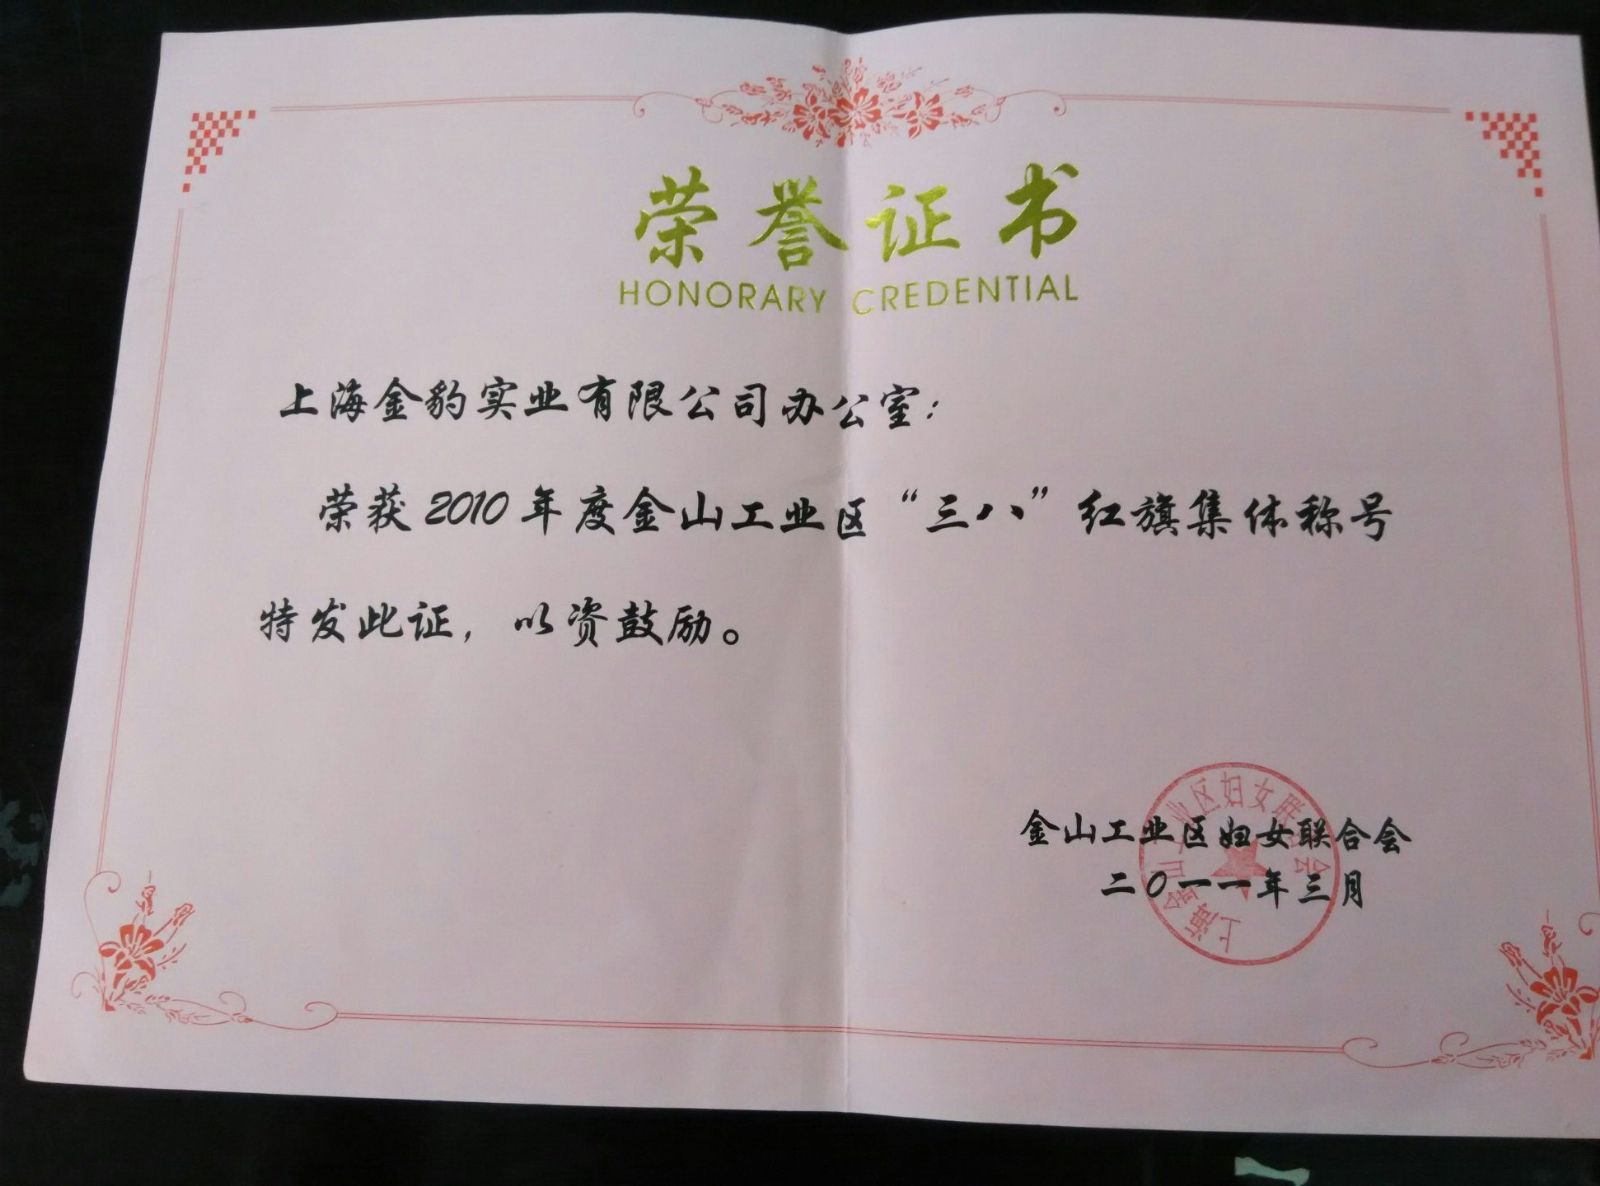 荣誉证书
HONORARY CREDENTIAL
上海金豹实业有限公司办公室:
荣获2010年度金山工业区“三八”红旗集体称号
特发此证，以资鼓励。
金山工业区妇女联合会
二〇一一年三月
上海金山工业区妇女联合会